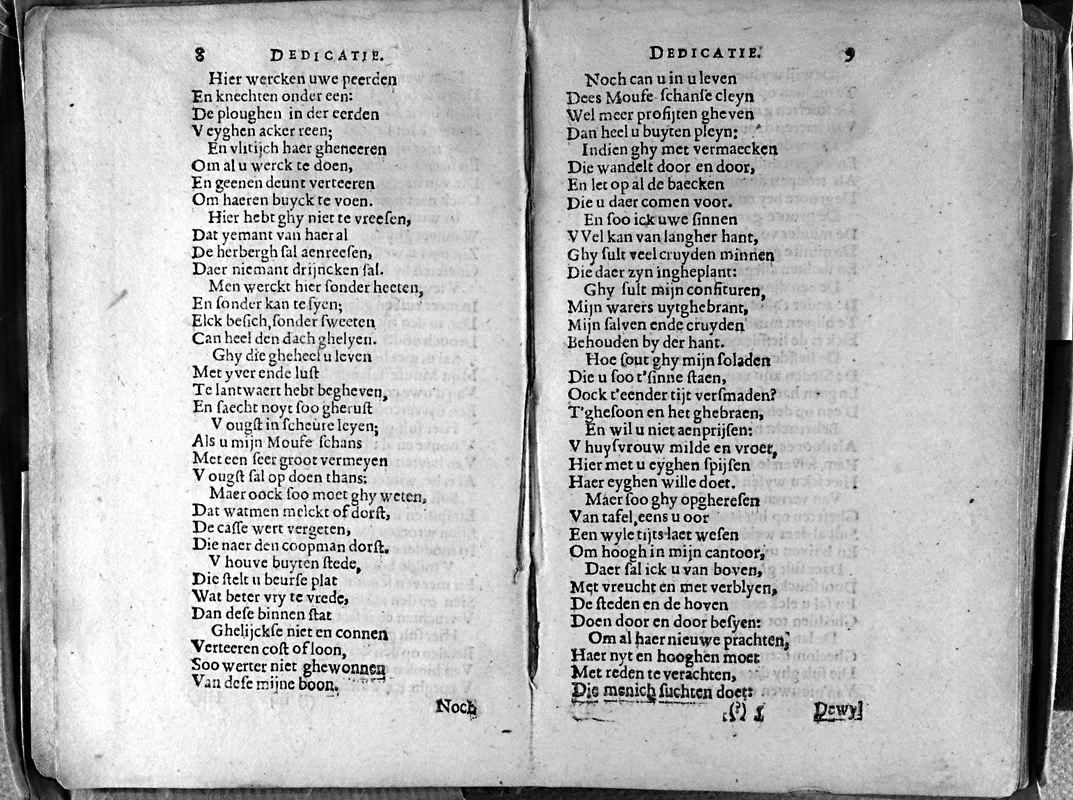 8 DEDICATIE.
Hier wercken uwe peerden
En knechten onder een:
De ploughen in der eerden
V eyghen acker reen;
En vlitijch haer gheneeren
Om al u werck te doen,
En geenen deunt verteeren
Om haeren buyck te voen.
Hier hebt ghy niet te vreesen,
Dat yemant van haer al
De herbergh sal aenreesen,
Daer niemant drijncken sal.
Men werckt hier sonder heeten,
En sonder kan te syen;
Elck besich, sonder sweeten
Can heel den dach ghelyen.
Ghy die gheheel u leven
Met yver ende lust
Te lantwaert hebt begheven,
En saecht noyt soo gherust
V ougst in scheure leyen;
Als u mijn Moufe schans
Met een seer groot vermeyen
V ougst sal op doen thans:
Maer oock soo moet ghy weten,
Dat watmen melckt of dorst,
De casse wert vergeten,
Die naer den coopman dorst.
V houve buyten stede,
Die stelt u beurse plat
Wat beter vry te vrede,
Dan dese binnen stat
Ghelijckse niet en connen
Verteeren cost of loon,
Soo werter niet ghewonnen
Van dese mijne boon.
Noch
DEDICATIE. 9
Noch can u in u leven
Dees Moufe schanse cleyn
Wel meer profijten gheven
Dan heel u buyten pleyn:
Indien ghy met vermaecken
Die wandelt door en door,
En let op al de baecken
Die u daer comen voor.
En soo ick uwe sinnen
VVel kan van langher hant,
Ghy sult veel cruyden minnen
Die daer zyn ingheplant:
Ghy sult mijn confituren,
Mijn waters uytghebrant,
Mijn salven ende cruyden
Behouden by der hant.
Hoe sout ghy mijn soladen
Die u soo t'sinne staen,
Oock t'eender tijt versmaden?
T'ghesoon en het ghebraen,
En wil u niet aenprijsen:
V huysvrouw milde en vroet,
Hier met u eyghen spijsen
Haer eyghen wille doet.
Maer soo ghy opgheresen
Van tafel, eens u oor
Een wyle tijts laet wesen
Om hoogh in mijn cantoor,
Daer sal ick u van boven,
Met vreucht en met verblyen,
De steden en de hoven
Doen door en door besyen:
Om al haer nieuwe prachten,
Haer nyt en hooghen moet
Met reden te verachten,
Die menich suchten doet:
(?) 1 Dewyl